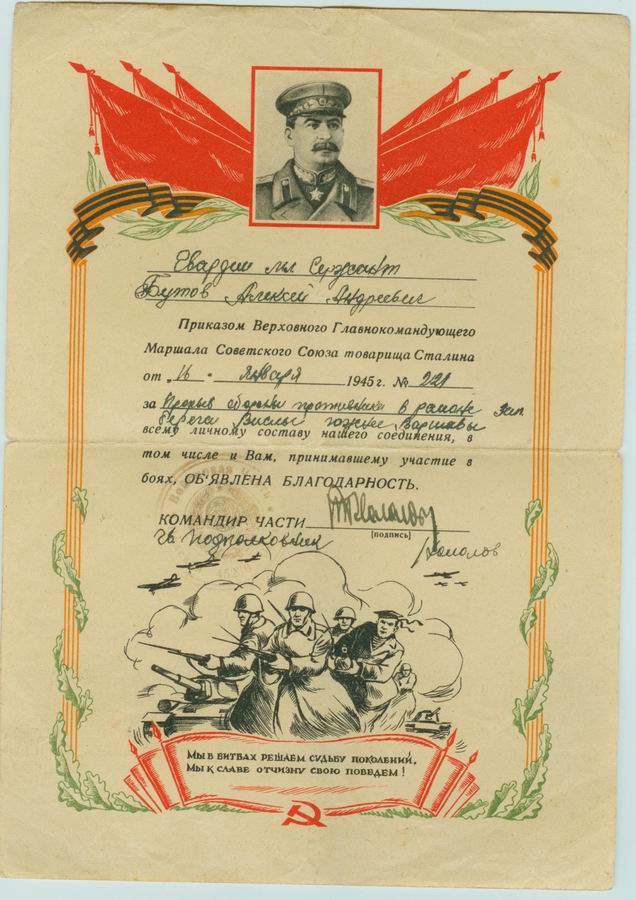 Гвардии мл Сержант
Бутов Алексей Андреевич
Приказом Верховного Главнокомандующего
Маршала Советского Союза товарища Сталина
от „16 " января 1945 г. № 221
за Прорыв обороны противника в районе зап
берега Вислы южнее Варшавы
всему личному составу нашего соединения, в
том числе и Вам, принимавшему участие в
боях, ОБ'ЯВЛЕНА БЛАГОДАРНОСТЬ.
КОМАНДИР ЧАСТИ
[подпись]
Гв. Подполковник
МЫ В БИТВАХ РЕШАЕМ СУДЬБУ ПОКОЛЕНИЙ,
МЫ К СЛАВЕ ОТЧИЗНУ СВОЮ ПОВЕДЕМ!